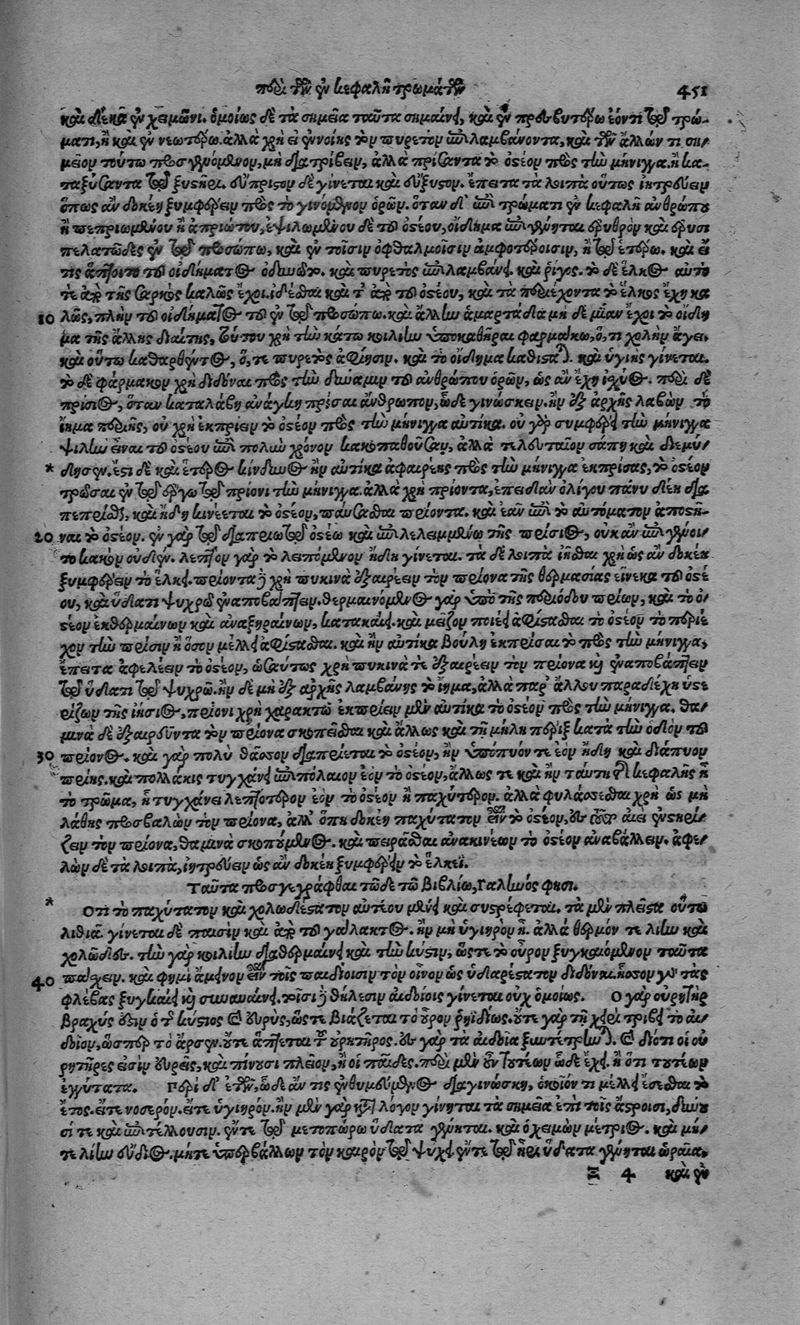 περὶ τῶν ἐν κεφαλῇ τρωμάτων 451
καὶ δέκα ἐν χειμῶνι. ὁμοίως δὲ τὰ σημεῖα ταῦτα σημαίνει, καὶ ἐν πρεσβυτέρῳ ἐόντι τῷ τρώ-
ματι, ἢ καὶ ἐν νεωτέρῳ. ἀλλὰ χρὴ εἰ ἐννοίης τὸν πυρετὸν ἐπιλαμβάνοντα, καὶ τῶν ἄλλων τι ση-
μεῖον τούτῳ προσγενόμενον, μὴ διατρίβειν, ἀλλὰ πρίσαντα τὸ ὀστέον πρὸς τὴν μήνιγγα, ἢ κα-
ταξύσαντα τῷ ξυστῆρι. εὔπριστον δὲ γίνεται καὶ εὔξυστον. ἔπειτα τὰ λοιπὰ οὕτως ἰητρεύειν
ὅπως ἂν δοκέῃ ξυμφέρειν πρὸς τὸ γινόμενον ὁρῶν. ὅταν δ' ἐπὶ τρώματι ἐν κεφαλῇ ἀνθρώπου
ἢ πεπριωμένου ἢ ἀπριώτου, ἐψιλωμένου δὲ τοῦ ὀστέου, οἴδημα ἐπιγένηται ἐρυθρὸν καὶ ἐρυσι
πελατῶδες ἐν τῷ προσώπῳ, καὶ ἐν τοῖσιν ὀφθαλμοῖσιν ἀμφοτέροισιν, ἢ τῷ ἑτέρῳ. καὶ εἴ
τις ἅπτοιτο τοῦ οἰδήματος ὀδυνῷτο. καὶ πυρετὸς ἐπιλαμβάνει καὶ ῥῖγος. τὸ δὲ ἕλκος αὐτὸ
τε ἀπὸ τῆς σαρκὸς καλῶς ἔχοι ἰδέσθαι καὶ τὰ ἀπὸ τοῦ ὀστέου, καὶ τὰ περιέχοντα τὸ ἕλκος ἔχῃ κα
10 λῶς, πλὴν τοῦ οἰδήματος τοῦ ἐν τῷ προσώπῳ. καὶ ἄλλην ἁμαρτάδα μηδεμίαν ἔχοι τὸ οἴδη
μα τῆς ἄλλης διαίτης, τούτου χρὴ τὴν κάτω κοιλίην ὑποκαθῆραι φαρμάκῳ, ὅ, τι χολὴν ἄγει.
καὶ οὕτω καθαρθέντος, ὅ, τε πυρετὸς ἀφίησιν. καὶ τὸ οἴδημα καθίσταται. καὶ ὑγιὴς γίνεται.
τὸ δὲ φάρμακον χρὴ διδόναι πρὸς τὴν δύναμιν τοῦ ἀνθρώπου ὁρῶν, ὡς ἂν ἔχῃ ἰσχύος. περὶ δὲ
πρίσιος, ὅταν καταλάβῃ ἀνάγκη πρίσαι ἄνθρωπον, ὧδε γινώσκειν. ἢν ἐξ ἀρχῆς λαβὼν τὸ
ἴημα πρίῃς, οὐ χρὴ ἐκπρίειν τὸ ὀστέον πρὸς τὴν μήνιγγα αὐτίκα. οὐ γὰρ συμφέρει τὴν μήνιγγα
ψιλὴν εἶναι τοῦ ὀστέου ἐπὶ πολὺν χρόνον κακοπαθοῦσαν, ἀλλὰ τελευταῖον σάπῃ καὶ διεμύ-
* δησεν. ἔστι δὲ καὶ ἕτερος κίνδυνος ἢν αὐτίκα ἀφαιρέῃς πρὸς τὴν μήνιγγα ἐκπρίσας, τὸ ὀστέον
τρῶσαι ἐν τῷ ἔργῳ τῷ πρίονι τὴν μήνιγγα. ἀλλὰ χρὴ πρίοντα, ἐπειδὰν ὀλίγου πάνυ δέῃ δια
πεπρίσθαι, καὶ ἤδη κινέεται τὸ ὀστέον, παύσασθαι πρίοντα. καὶ ἐᾶν ἐπὶ τὸ αὐτόματον ἀποστῆ-
20 ναι τὸ ὀστέον. ἐν γὰρ τῷ διαπριωτῷ ὀστέῳ καὶ ἐπιλελειμμένῳ τῆς πρίσιος, οὐκ ἂν ἐπιγένοι-
το κακὸν οὐδέν. λεπτὸν γὰρ τὸ λειπόμενον ἤδη γίνεται. τὰ δὲ λοιπὰ ἰῆσθαι χρὴ ὡς ἂν δοκέῃ
ξυμφέρειν τῷ ἕλκει. πρίοντα δὲ χρὴ πυκινὰ ἐξαιρέειν τὸν πρίονα τῆς θερμασίας εἵνεκα τοῦ ὀστέ
ου, καὶ ὕδατι ψυχρῷ ἐναποβάπτειν. θερμαινόμενος γὰρ ὑπὸ τῆς περιόδου πρίων, καὶ τὸ ὀ-
στέον ἐκθερμαίνων καὶ ἀναξηραίνων, κατακαίει. καὶ μεῖζον ποιέει ἀφίστασθαι τὸ ὀστέον τὸ περιέ
χον τὴν πρίσιν ἢ ὅσον μέλλει ἀφίστασθαι. καὶ ἢν αὐτίκα βούλῃ ἐκπρίσαι τὸ πρὸς τὴν μήνιγγα,
ἔπειτα ἀφελέειν τὸ ὀστέον, ὡσαύτως χρὴ πυκινά τε ἐξαιρέειν τὸν πρίονα καὶ ἐναποβάπτειν
τῷ ὕδατι τῷ ψυχρῷ. ἢν δὲ μὴ ἐξ ἀρχῆς λαμβάνῃς τὸ ἴημα, ἀλλὰ παρ' ἄλλου παραδέχῃ ὑστε
ρίζων τῆς ἰήσιος, πρίονι χρὴ χαρακτῷ ἐκπρίειν μὲν αὐτίκα τὸ ὀστέον πρὸς τὴν μήνιγγα. θα
μινὰ δὲ ἐξαιρεῦντα τὸν πρίονα σκοπεῖσθαι καὶ ἄλλως καὶ τῇ μήλῃ πέριξ κατὰ τὴν ὁδὸν τοῦ
30 πρίονος. καὶ γὰρ πολὺ θᾶσσον διαπρίεται τὸ ὀστέον, ἢν ὑπόπυόν τε ἐὸν ἤδη καὶ διάπυον
πρίῃς. καὶ πολλάκις τυγχάνει ἐπιπόλαιον ἐὸν τὸ ὀστέον, ἄλλως τε καὶ ἢν ταύτῃ τῆς κεφαλῆς ᾖ
τὸ τρῶμα, ᾗ τυγχάνει λεπτότερον ἐὸν τὸ ὀστέον ἢ παχύτερον. ἀλλὰ φυλάσσεσθαι χρὴ ὡς μὴ
λάθῃς προσβαλὼν τὸν πρίονα, ἀλλ' ὅπη δοκέῃ παχύτατον εἶναι τὸ ὀστέον, ἐς τοῦτο ἀεὶ ἐνστηρί-
ζειν τὸν πρίονα, θαμινὰ σκοπούμενος. καὶ πειρᾶσθαι ἀνακινέων τὸ ὀστέον ἀναβάλλειν. ἀφε-
λὼν δὲ τὰ λοιπὰ, ἰητρεύειν ὡς ἂν δοκέῃ ξυμφέρειν τῷ ἕλκεϊ.
Ταῦτα προσγεγράφθαι τῷδε τῷ βιβλίῳ, Γαληνός φησι.
* Ὅτι τὸ παχύτατον καὶ χολωδέστατον αὐτέου μένει καὶ συστρέφεται. τὰ μὲν πλεῖστα οὕτω
λιθιᾷ. γίνεται δὲ παισὶν καὶ ἀπὸ τοῦ γάλακτος. ἢν μὴ ὑγιηρὸν ᾖ. ἀλλὰ θερμόν τε λίην καὶ
χολῶδες. τὴν γὰρ κοιλίην διαθερμαίνει καὶ τὴν κύστιν, ὥστε τὸ οὖρον ξυγκαιόμενον ταῦτα
40 πάσχειν. καὶ φημὶ ἄμεινον εἶναι τοῖς παιδίοισιν τὸν οἶνον ὡς ὑδαρέστατον διδόναι. ἧσσον γὰρ τὰς
φλέβας ξυγκαίει καὶ συναυαίνει. τοῖσι δὲ θήλεσιν παιδίοις γίνεται οὐχ ὁμοίως. Ὁ γὰρ οὐρητὴρ
βραχύς ἐστιν ὁ τῆς κύστιος καὶ εὐρύς, ὥστε βιάζεται τὸ οὖρον ῥηϊδίως. οὔτε γὰρ τῇ χειρὶ τρίβει τὸ αἰ-
δοῖον, ὥσπερ τὸ ἄρσεν. οὔτε ἅπτεται τοῦ οὐρητῆρος. ἐς γὰρ τὰ αἰδοῖα ξυντέτρηται. καὶ διότι οἱ οὐ
ρητῆρες εἰσὶν εὐρεῖς, καὶ πίνουσι πλεῖον, ἢ οἱ παῖδες. περὶ μὲν οὖν τούτων ὧδε ἔχει. ἢ ὅτι τούτων
ἐγγύτατα. Περὶ δ' ἐτέων, ὧδε ἄν τις ἐνθυμεύμενος διαγινώσκῃ, ὁκοῖόν τι μέλλει ἔσεσθαι τὸ
ἔτος. εἴτε νοσερόν. εἴτε ὑγιηρόν. ἢν μὲν γὰρ κατὰ λόγον γίνηται τὰ σημεῖα ἐπὶ τοῖς ἄστροισι, δύνου
σί τε καὶ ἐπιτέλλουσιν. ἔν τε τῷ μετοπώρῳ ὕδατα γένηται. καὶ ὁ χειμὼν μέτριος. καὶ μή-
τε λίην εὔδιος. μήτε ὑπερβάλλων τὸν καιρὸν τῷ ψύχει. ἔν τε τῷ ἦρι ὕδατα γένηται ὡραῖα,
Ξ 4 καὶ ἐν